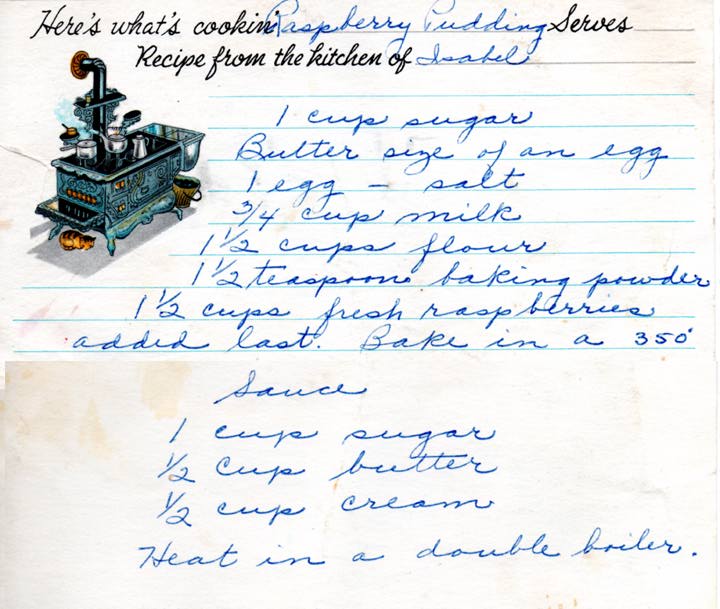 Here's what's cookin' Raspberry Pudding Serves
Recipe from the kitchen of Isabel
1 cup sugar
Butter size of an egg
1 egg – salt
3/4 cup milk
1 1/2 cups flour
1 1/2 teaspoon baking powder
1 1/2 cups fresh raspberries
added last. Bake in a 350°
Sauce
1 cup sugar
1/2 cup butter
1/2 cup cream
Heat in a double boiler.